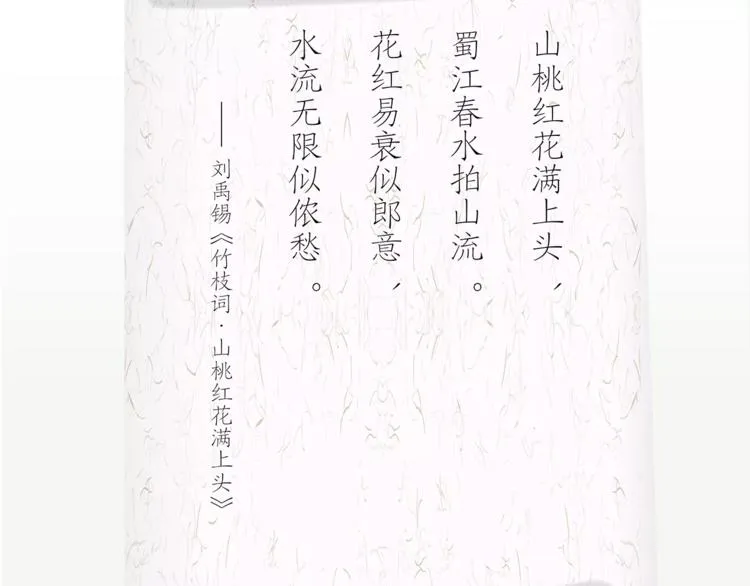 山桃红花满上头，
蜀江春水拍山流。
花红易衰似郎意，
水流无限似侬愁。
——刘禹锡《竹枝词·山桃红花满上头》